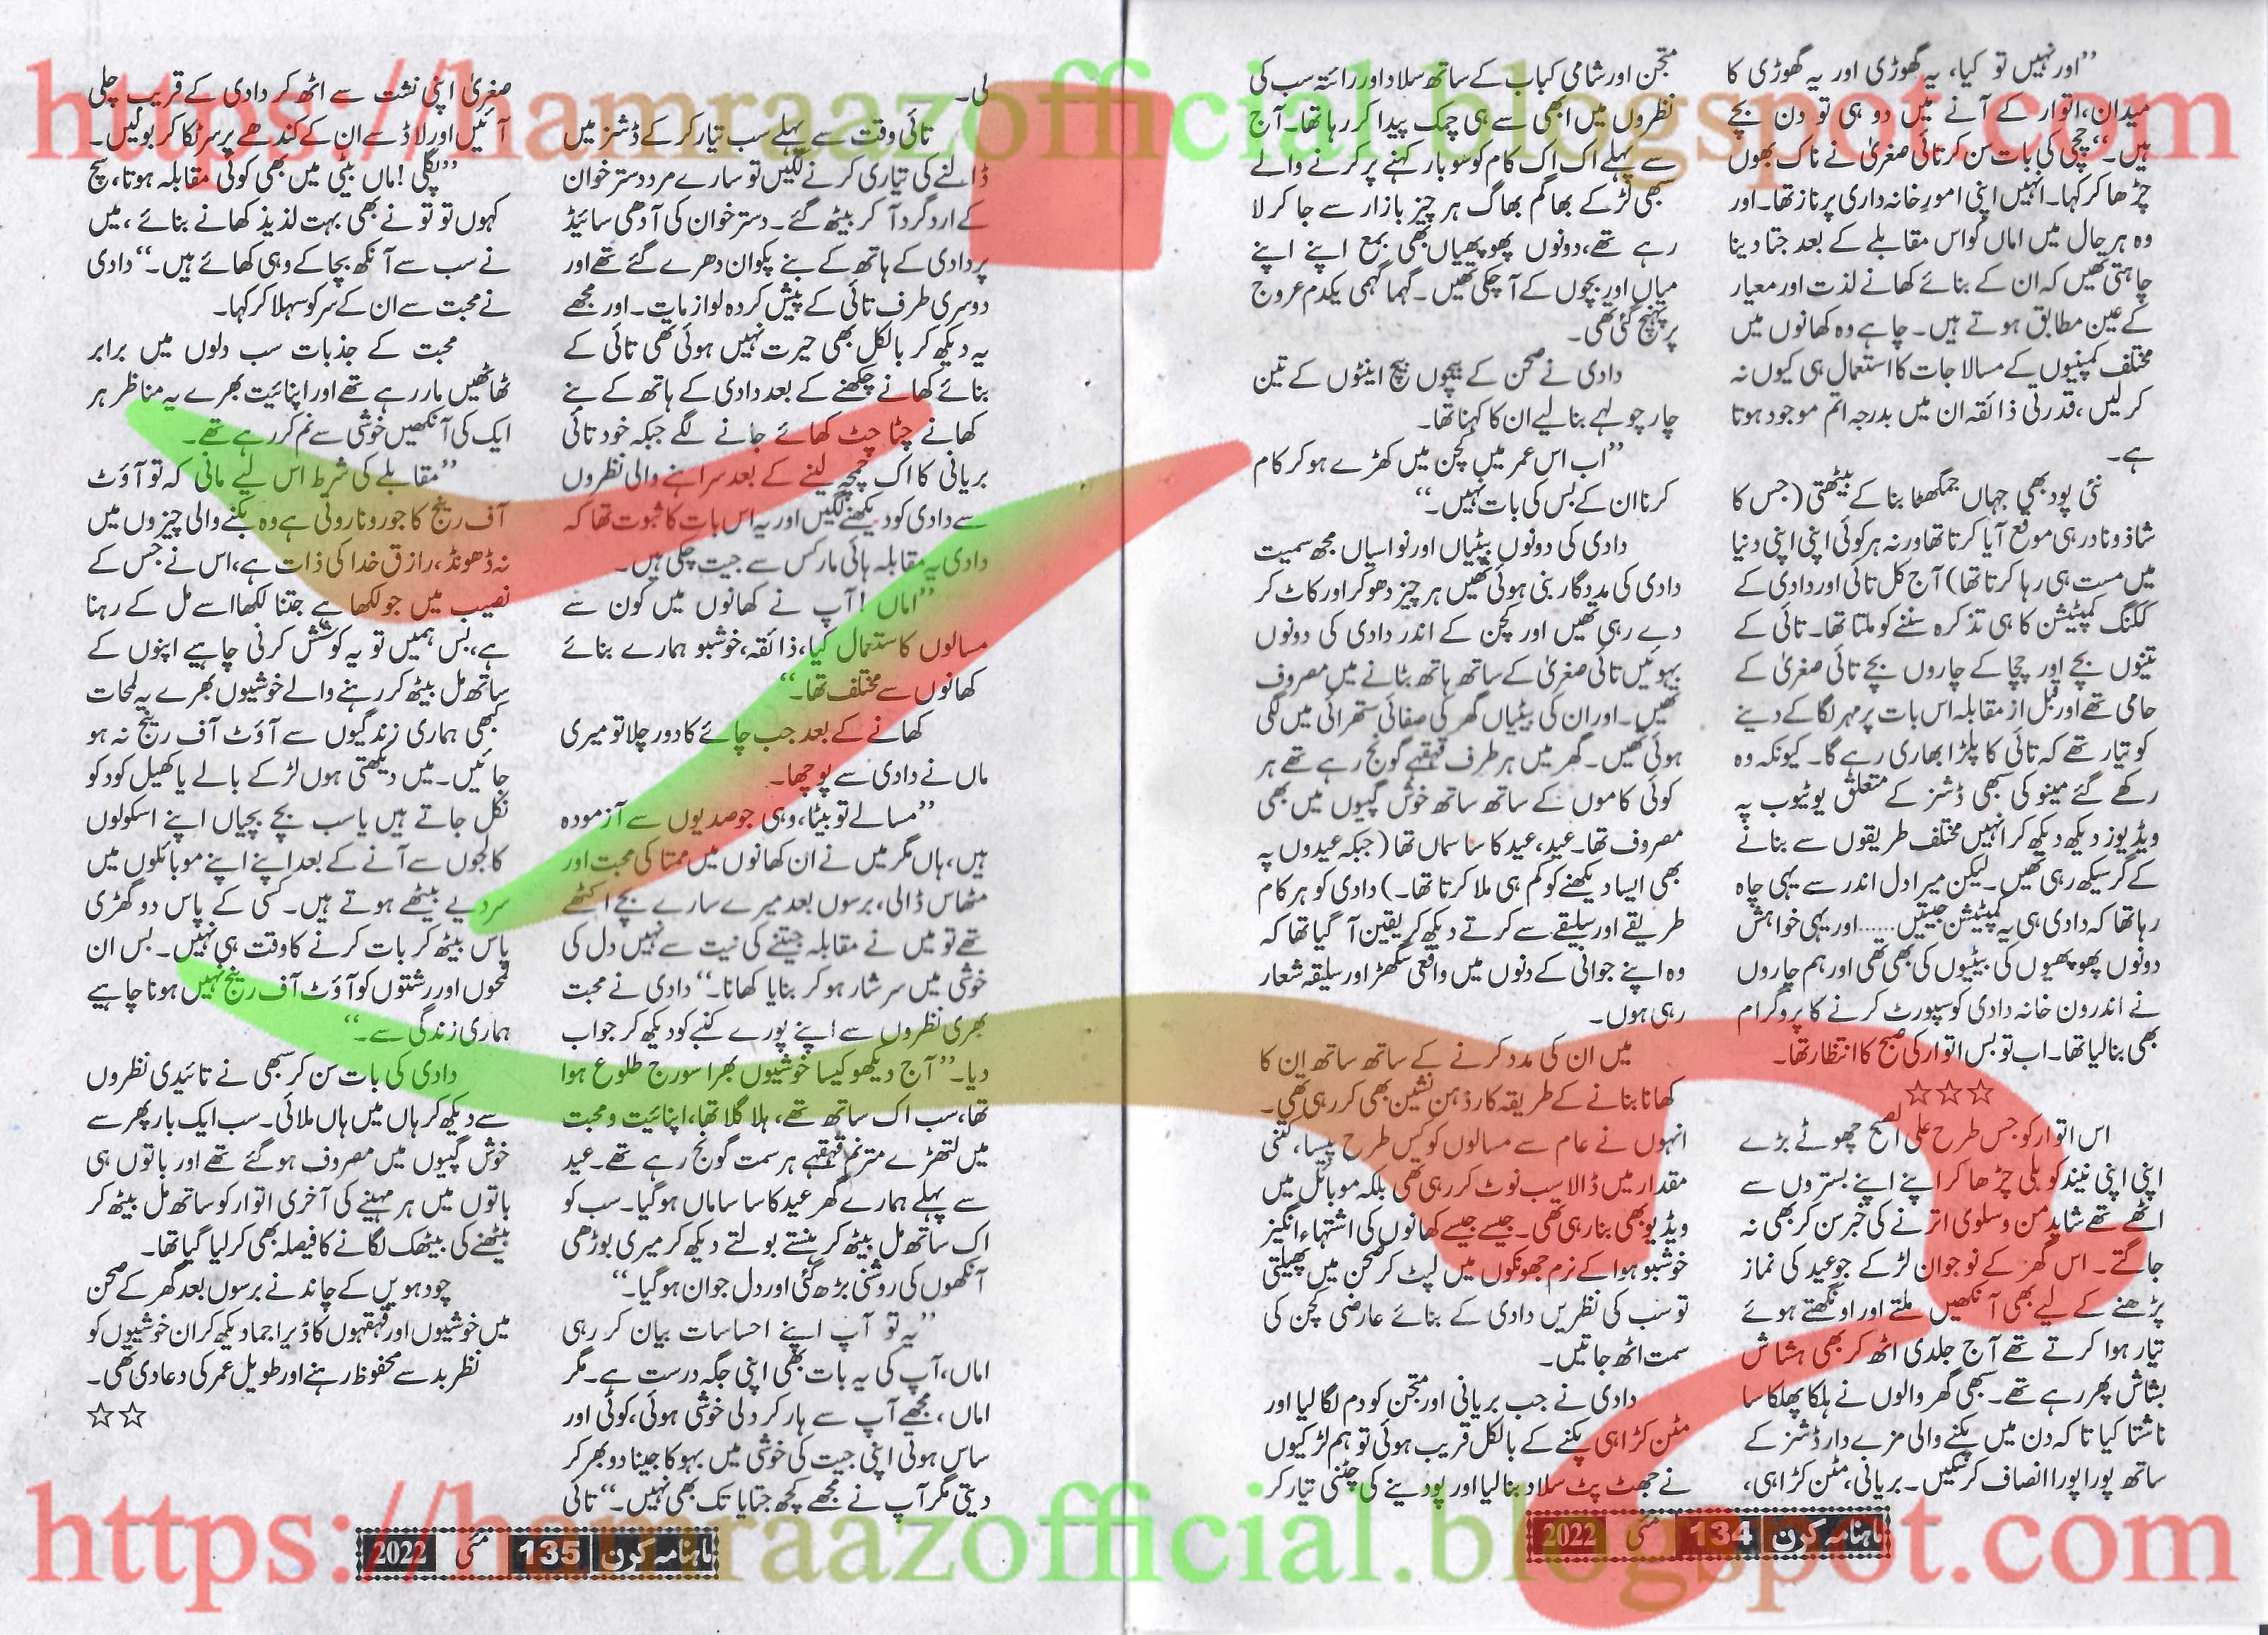 https://hamraazofficial.blogspot.com
”اور نہیں تو کیا، یہ گھوڑی اور یہ گھوڑی کا
میدان، اتوار کے آنے میں دو ہی تو دن بچے
ہیں۔“ چچی کی بات سن کر تائی صغریٰ نے ناک بھوں
چڑھا کر کہا۔ انہیں اپنی امورِ خانہ داری پر ناز تھا۔ اور
وہ ہر حال میں اماں کو اس مقابلے کے بعد جتا دینا
چاہتی تھیں کہ ان کے بنائے کھانے لذت اور معیار
کے عین مطابق ہوتے ہیں۔ چاہے وہ کھانوں میں
مختلف کمپنیوں کے مسالا جات کا استعمال ہی کیوں نہ
کر لیں، قدرتی ذائقہ ان میں بدرجہ اتم موجود ہوتا
ہے۔
نئی پود بھی جہاں جمگھٹا بنا کے بیٹھتی (جس کا
شاذ و نادر ہی موقع آیا کرتا تھا ورنہ ہر کوئی اپنی اپنی دنیا
میں مست ہی رہا کرتا تھا) آج کل تائی اور دادی کے
ککنگ کمپٹیشن کا ہی تذکرہ سننے کو ملتا تھا۔ تائی کے
تینوں بچے اور چچا کے چاروں بچے تائی صغریٰ کے
حامی تھے اور قبل از مقابلہ اس بات پر مہر لگا کے دینے
کو تیار تھے کہ تائی کا پلڑا بھاری رہے گا۔ کیونکہ وہ
رکھے گئے مینو کی سبھی ڈشز کے متعلق یوٹیوب پہ
ویڈیوز دیکھ دیکھ کر انہیں مختلف طریقوں سے بنانے
کے گر سیکھ رہی تھیں۔ لیکن میرا دل اندر سے یہی چاہ
رہا تھا کہ دادی ہی یہ کمپٹیشن جیتیں...... اور یہی خواہش
دونوں پھوپھیوں کی بیٹیوں کی بھی تھی اور ہم چاروں
نے اندرون خانہ دادی کو سپورٹ کرنے کا پروگرام
بھی بنا لیا تھا۔ اب تو بس اتوار کی صبح کا انتظار تھا۔
☆☆☆
اس اتوار کو جس طرح علی الصبح چھوٹے بڑے
اپنی اپنی نیند کو بلی چڑھا کر اپنے اپنے بستروں سے
اٹھے تھے شاید من و سلویٰ اترنے کی خبر سن کر بھی نہ
جاگتے۔ اس گھر کے نوجوان لڑکے جو عید کی نماز
پڑھنے کے لیے بھی آنکھیں ملتے اور اونگھتے ہوئے
تیار ہوا کرتے تھے آج جلدی اٹھ کر بھی ہشاش
بشاش پھر رہے تھے۔ سبھی گھر والوں نے ہلکا پھلکا سا
ناشتا کیا تا کہ دن میں پکنے والی مزے دار ڈشز کے
ساتھ پورا پورا انصاف کر سکیں۔ بریانی، مٹن کڑاہی،
متنجن اور شامی کباب کے ساتھ سلاد اور رائتہ سب کی
نظروں میں ابھی سے ہی چمک پیدا کر رہا تھا۔ آج
سے پہلے اک اک کام کو سو بار کہنے پر کرنے والے
سبھی لڑکے بھاگم بھاگ ہر چیز بازار سے جا کر لا
رہے تھے، دونوں پھوپھیاں بھی بمع اپنے اپنے
میاں اور بچوں کے آ چکی تھیں۔ گہما گہمی یکدم عروج
پر پہنچ گئی تھی۔
دادی نے صحن کے بیچوں بیچ اینٹوں کے تین
چار چولہے بنا لیے ان کا کہنا تھا۔
”اب اس عمر میں کچن میں کھڑے ہو کر کام
کرنا ان کے بس کی بات نہیں۔“
دادی کی دونوں بیٹیاں اور نواسیاں مجھ سمیت
دادی کی مددگار بنی ہوئی تھیں ہر چیز دھو کر اور کاٹ کر
دے رہی تھیں اور کچن کے اندر دادی کی دونوں
بہوئیں تائی صغریٰ کے ساتھ ہاتھ بٹانے میں مصروف
تھیں۔ اور ان کی بیٹیاں گھر کی صفائی ستھرائی میں لگی
ہوئی تھیں۔ گھر میں ہر طرف قہقہے گونج رہے تھے ہر
کوئی کاموں کے ساتھ ساتھ خوش گپیوں میں بھی
مصروف تھا۔ عید، عید کا سا سماں تھا (جبکہ عیدوں پہ
بھی ایسا دیکھنے کو کم ہی ملا کرتا تھا۔) دادی کو ہر کام
طریقے اور سلیقے سے کرتے دیکھ کر یقین آ گیا تھا کہ
وہ اپنے جوانی کے دنوں میں واقعی سگھڑ اور سلیقہ شعار
رہی ہوں۔
میں ان کی مدد کرنے کے ساتھ ساتھ ان کا
کھانا بنانے کے طریقہ کار ذہن نشین بھی کر رہی تھی۔
انہوں نے عام سے مسالوں کو کس طرح پیسا، کتنی
مقدار میں ڈالا سب نوٹ کر رہی تھی بلکہ موبائل میں
ویڈیو بھی بنا رہی تھی۔ جیسے جیسے کھانوں کی اشتہاء انگیز
خوشبو ہوا کے نرم جھونکوں میں لپٹ کر صحن میں پھیلتی
تو سب کی نظریں دادی کے بنائے عارضی کچن کی
سمت اٹھ جاتیں۔
دادی نے جب بریانی اور متنجن کو دم لگا لیا اور
مٹن کڑاہی پکنے کے بالکل قریب ہوئی تو ہم لڑکیوں
نے جھٹ پٹ سلاد بنا لیا اور پودینے کی چٹنی تیار کر
ماہنامہ کرن 134 مئی 2022
لی۔
تائی وقت سے پہلے سب تیار کر کے ڈشز میں
ڈالنے کی تیاری کرنے لگیں تو سارے مرد دستر خوان
کے ارد گرد آ کر بیٹھ گئے۔ دستر خوان کی آدھی سائیڈ
پر دادی کے ہاتھ کے بنے پکوان دھرے گئے تھے اور
دوسری طرف تائی کے پیش کردہ لوازمات۔ اور مجھے
یہ دیکھ کر بالکل بھی حیرت نہیں ہوئی تھی تائی کے
بنائے کھانے چکھنے کے بعد دادی کے ہاتھ کے بنے
کھانے چٹا چٹ کھائے جانے لگے جبکہ خود تائی
بریانی کا اک چمچہ لینے کے بعد سراہنے والی نظروں
سے دادی کو دیکھنے لگیں اور یہ اس بات کا ثبوت تھا کہ
دادی یہ مقابلہ ہائی مارکس سے جیت چکی ہیں۔
”اماں! آپ نے کھانوں میں کون سے
مسالوں کا ستعمال کیا، ذائقہ، خوشبو ہمارے بنائے
کھانوں سے مختلف تھا۔“
کھانے کے بعد جب چائے کا دور چلا تو میری
ماں نے دادی سے پوچھا۔
”مسالے تو بیٹا، وہی جو صدیوں سے آزمودہ
ہیں، ہاں مگر میں نے ان کھانوں میں ممتا کی محبت اور
مٹھاس ڈالی، برسوں بعد میرے سارے بچے اکٹھے
تھے تو میں نے مقابلہ جیتنے کی نیت سے نہیں دل کی
خوشی میں سرشار ہو کر بنایا کھانا۔“ دادی نے محبت
بھری نظروں سے اپنے پورے کنبے کو دیکھ کر جواب
دیا۔ ”آج دیکھو کیسا خوشیوں بھرا سورج طلوع ہوا
تھا، سب اک ساتھ تھے، ہلا گلا تھا، اپنائیت و محبت
میں لتھڑے مترنم قہقہے ہر سمت گونج رہے تھے۔ عید
سے پہلے ہمارے گھر عید کا سا ساماں ہو گیا۔ سب کو
اک ساتھ مل بیٹھ کر ہنستے بولتے دیکھ کر میری بوڑھی
آنکھوں کی روشنی بڑھ گئی اور دل جوان ہو گیا۔“
”یہ تو آپ اپنے احساسات بیان کر رہی
اماں، آپ کی یہ بات بھی اپنی جگہ درست ہے۔ مگر
اماں، مجھے آپ سے ہار کر دلی خوشی ہوئی، کوئی اور
ساس ہوتی اپنی جیت کی خوشی میں بہو کا جینا دو بھر کر
دیتی مگر آپ نے مجھے کچھ جتایا تک بھی نہیں۔“ تائی
صغریٰ اپنی نشت سے اٹھ کر دادی کے قریب چلی
آئیں اور لاڈ سے ان کے کندھے پر سر ٹکا کر بولیں۔
”پگلی! ماں بیٹی میں بھی کوئی مقابلہ ہوتا، سچ
کہوں تو تو نے بھی بہت لذیذ کھانے بنائے، میں
نے سب سے آنکھ بچا کے وہی کھائے ہیں۔“ دادی
نے محبت سے ان کے سر کو سہلا کر کہا۔
محبت کے جذبات سب دلوں میں برابر
ٹھاٹھیں مار رہے تھے اور اپنائیت بھرے یہ مناظر ہر
ایک کی آنکھیں خوشی سے نم کر رہے تھے۔
”مقابلے کی شرط اس لیے مانی کہ تو آؤٹ
آف رینج کا جو رونا روتی ہے وہ پکنے والی چیزوں میں
نہ ڈھونڈ، رازق خدا کی ذات ہے، اس نے جس کے
نصیب میں جو لکھا ہے جتنا لکھا اسے مل کے رہنا
ہے، بس ہمیں تو یہ کوشش کرنی چاہیے اپنوں کے
ساتھ مل بیٹھ کر رہنے والے خوشیوں بھرے یہ لمحات
کبھی ہماری زندگیوں سے آؤٹ آف رینج نہ ہو
جائیں۔ میں دیکھتی ہوں لڑکے بالے یا کھیل کود کو
نکل جاتے ہیں یا سب بچے بچیاں اپنے اسکولوں
کالجوں سے آنے کے بعد اپنے اپنے موبائلوں میں
سر دیے بیٹھے ہوتے ہیں۔ کسی کے پاس دو گھڑی
پاس بیٹھ کر بات کرنے کا وقت ہی نہیں۔ بس ان
لمحوں اور رشتوں کو آؤٹ آف رینج نہیں ہونا چاہیے
ہماری زندگی سے۔“
دادی کی بات سن کر سبھی نے تائیدی نظروں
سے دیکھ کر ہاں میں ہاں ملائی۔ سب ایک بار پھر سے
خوش گپیوں میں مصروف ہو گئے تھے اور باتوں ہی
باتوں میں ہر مہینے کی آخری اتوار کو ساتھ مل بیٹھ کر
بیٹھنے کی بیٹھک لگانے کا فیصلہ بھی کر لیا گیا تھا۔
چودہویں کے چاند نے برسوں بعد گھر کے صحن
میں خوشیوں اور قہقہوں کا ڈیرا جما دیکھ کر ان خوشیوں کو
نظر بد سے محفوظ رہنے اور طویل عمر کی دعا دی تھی۔
☆☆
ماہنامہ کرن 135 مئی 2022
https://hamraazofficial.blogspot.com